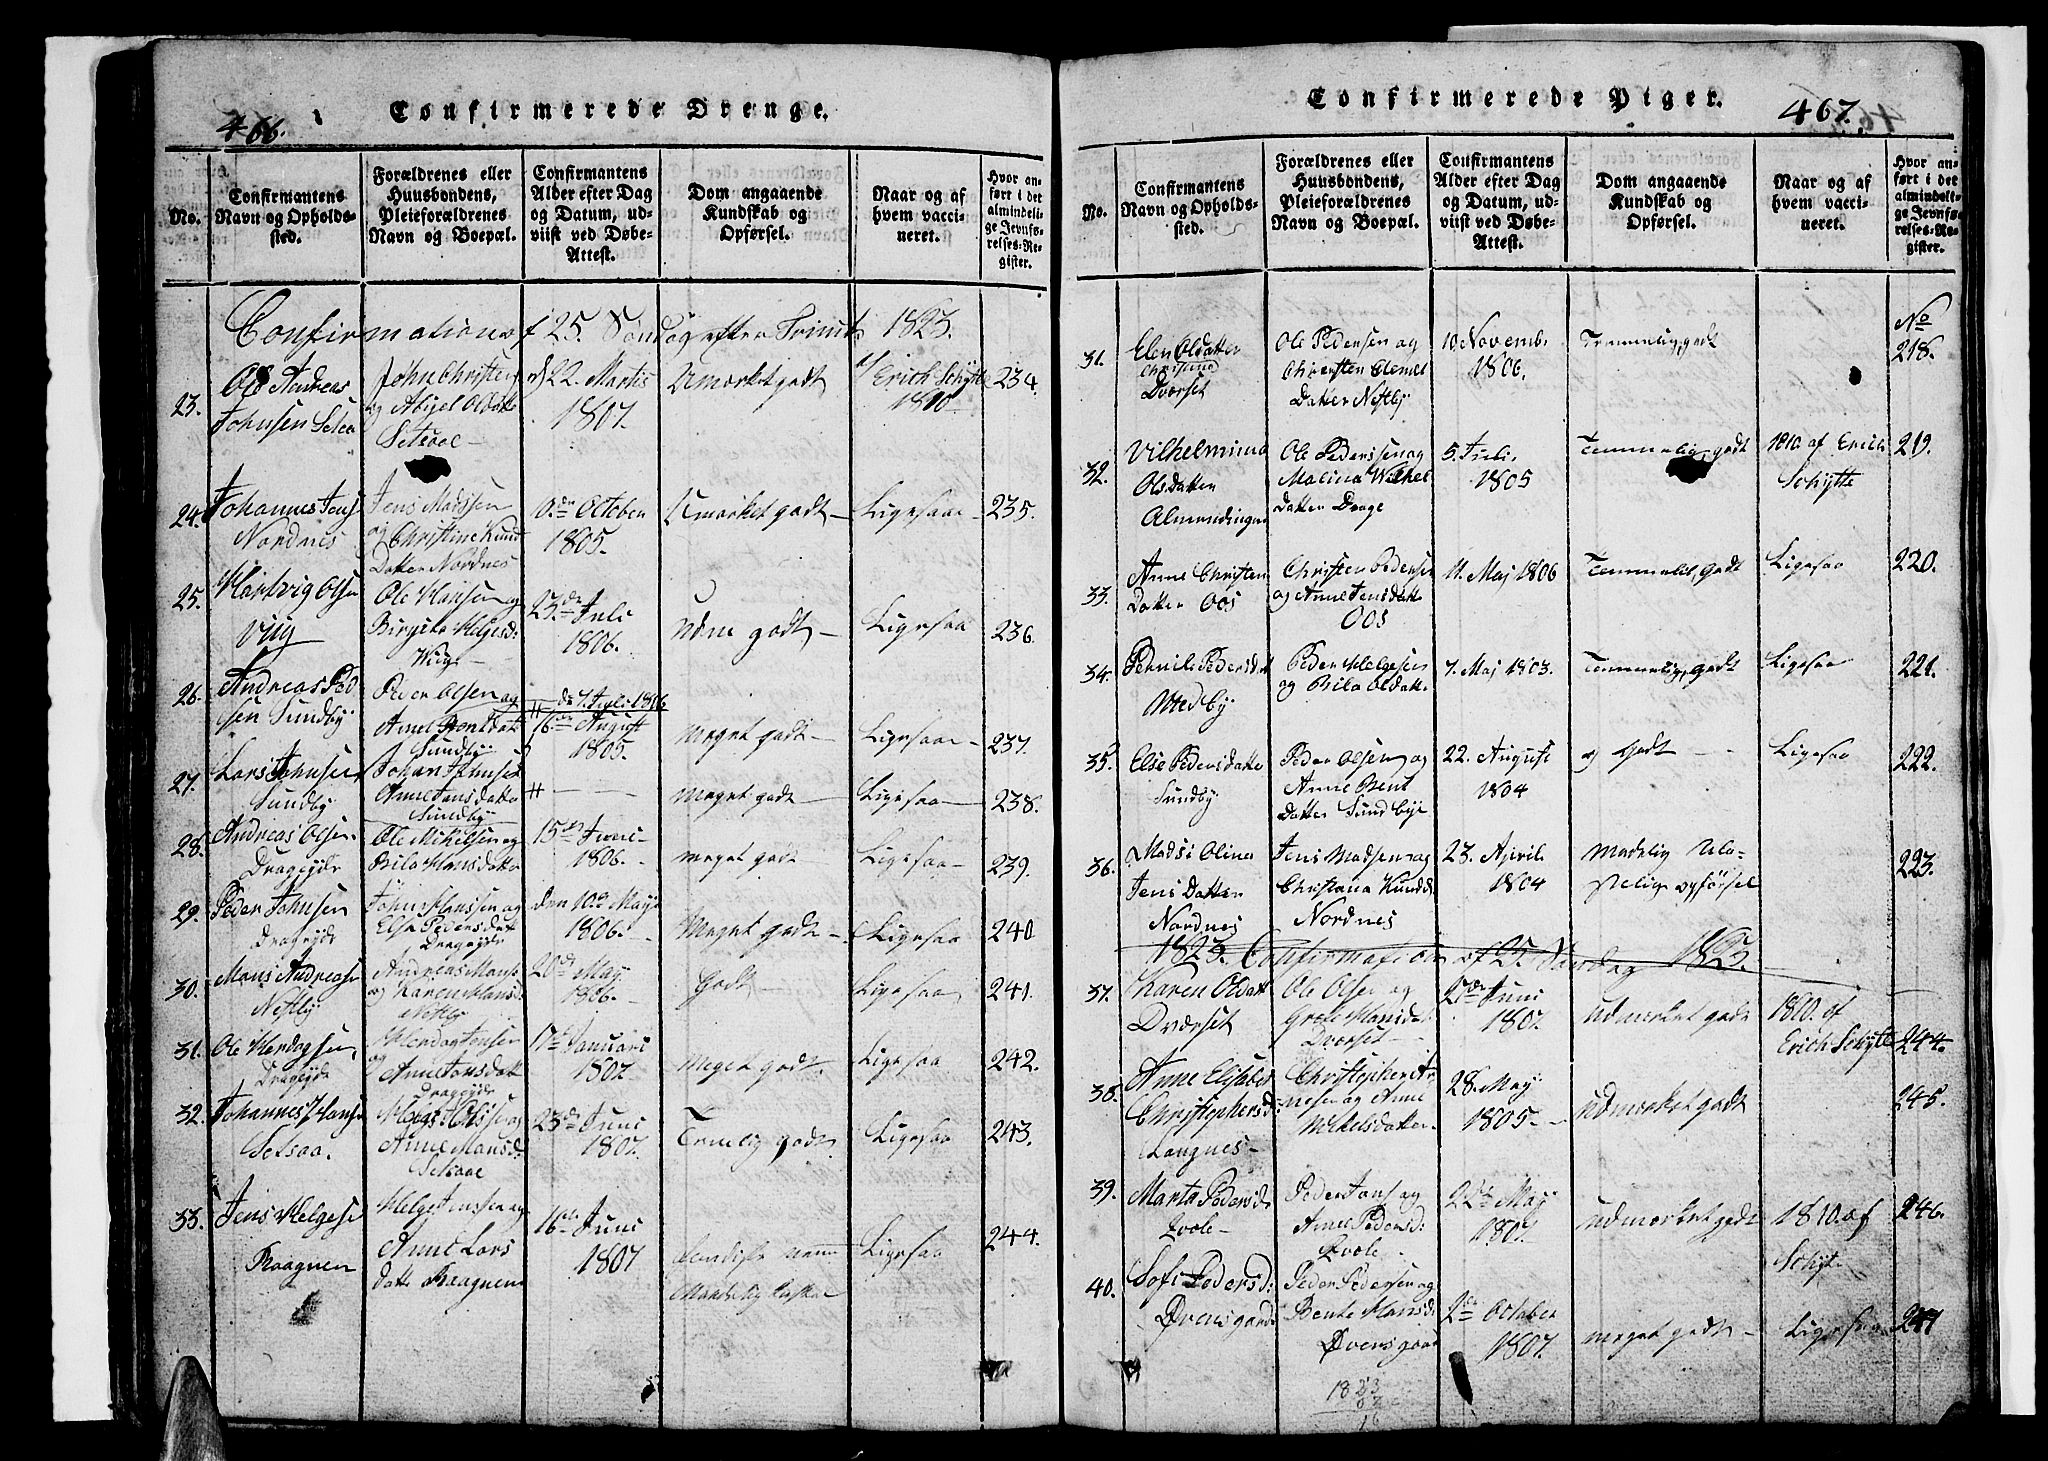 466.
Confirmerede Drenge.
No.
Confirmantens
Navn og Opholds-
sted.
Forældrenes eller
Huusbondens,
Pleieforældrenes
Navn og Boepæl.
Confirmantens
Alder efter Dag
og Datum, ud-
viist ved Døbe-
Attest.
Dom angaaende
Kundskab og
Opførsel.
Naar og af
hvem vacci-
neret.
Hvor an-
ført i det
almindeli-
ge Jevnfø-
relses-Re-
gister.
Confirmation af 25. Søndag efter Trinit. 1823.
23.
Ole Andreas
Johnsen Setsaa
John Christens
og Abigel Olsdatte
Setsaae
22. Martis
1807.
Udmærket godt
Erich Schytte
1810
234
24.
Johannes Jens
Nordnes
Jens Madssen
og Christine Knud
Datter Nordnes
October
1805.
Udmærket godt
Ligesaa
235.
25.
Hartvig Olsen
Viig
Ole Hansen og
Birgita Helgesd:
Wiig
23de Juli
1806.
godt
Ligesaa
236.
26.
Andreas Ped
sen Sundby
Peder Olsen og
Anne Bentdat
Sundby
7. Juli 1806
16de August
1805.
meget godt
Ligesaa
237.
27.
Lars Johnsen
Sundby
Johan Johnsen
Anne Jansdatte
Sundby
meget godt
Ligesaa
238.
28.
Andreas Olsen
Drageyde
Ole Mikelsen og
Bila Hansdatte
15de Juni
1806.
meget godt
Ligesaa
239.
29.
Peder Johnsen
Drageyde
John Hanssen og
Else Pedersdat
Drageyde
den 10de May
1806.
Meget godt
Ligesaa
240
30.
Hans Andreasen
Nestby
Andreas Hans
og Karen Hansd.
Nestby
20de May
1806.
Godt
Ligesaa
241.
31.
Ole Herdagsen
Drageyde
Herdag Jensen
og
Anne Jonsdatt
Drageyde
17de Januari
1807.
Meget godt.
Ligesaa
242.
32.
Johannes Hanse
Setsaa.
Anne Hansd:
Setsaae
23de Juni
1807.
Temlig godt
Ligesaa
243.
33.
Jens Helgese
Kaagnen
Helge Jenssen og
Anne Lars
datte Kaagnen
16de Juni
1807
Ligesaa
244.
Confirmerede Piger.
467.
No.
Confirmantens
Navn og Opholds-
sted.
Forældrenes eller
Huusbondens,
Pleieforældrenes
Navn og Boepæl.
Confirmantens
Alder efter Dag
og Datum, ud-
viist ved Døbe-
Attest.
Dom angaaende
Kundskab og
Opførsel.
Naar og af
hvem vacci-
neret.
Hvor an-
ført i det
almindeli-
ge Jevnfø-
relses-Re-
gister.
31.
Elen Olsdatter
Christina
Dværset
Ole Pedersen og
Clemet
Datter Nestby
10 Novemb.
1806.
Temmelig godt
No
218.
32.
Vilhelmina
Olsdatter
Almendingen
Ole Pederssen og
Malina Wilhel
datter Drage
5. Juli.
1805
Temmelig godt
1810 af Erich
Schytte
219.
33.
Anne Christen
Datter Oos
Christen Pedersen
og Anne Jensdatte
Oos
11. Maj 1806
Temmelig godt
Ligesaa
220.
34.
Pernile Pedersdat
Peder Helgesen
og Bila Oldatte.
7. Maj 1803.
Temmelig Godt
Ligesaa
221.
35.
Else Pedersdatte
Sundby
Peder Olsen og
Anne Bent
datter Sundbye
22. Augusti
1804
Godt
Ligesaa
222.
36.
Madsi Olina
Jens Datter
Nordnes
Jens Madsen og
Christiana Knudd
Nordnes
23. April
1804
Maadelig
opførsel
223.
1823. Confirmation af 25. Søndag 1823.
37.
Karen Oldatt
Dværset
Ole Olsen og
Grete Hansdat.
Dværset
Juni
1807.
udmærket godt
1810. af
Erich Schytte
244.
38.
Anne Elisabet
Christophersd:
Langnes
Christopher Ar
nesen og Anne
Mikelsdatter
28. May
1805.
udmærket godt
245.
39.
Marta Pedersd
Qvole
Peder Jans og
Anne Pedersd:
Qvole
22de May
1807.
udmærket godt
1810. af
Schyt.
246.
40.
Sofi Pedersd:
Øvensgaard
Peder Pedersen og
Bente Hansd:
Øvensgaar
2de October
1807.
meget godt
Ligesaa
247
1823
07
16